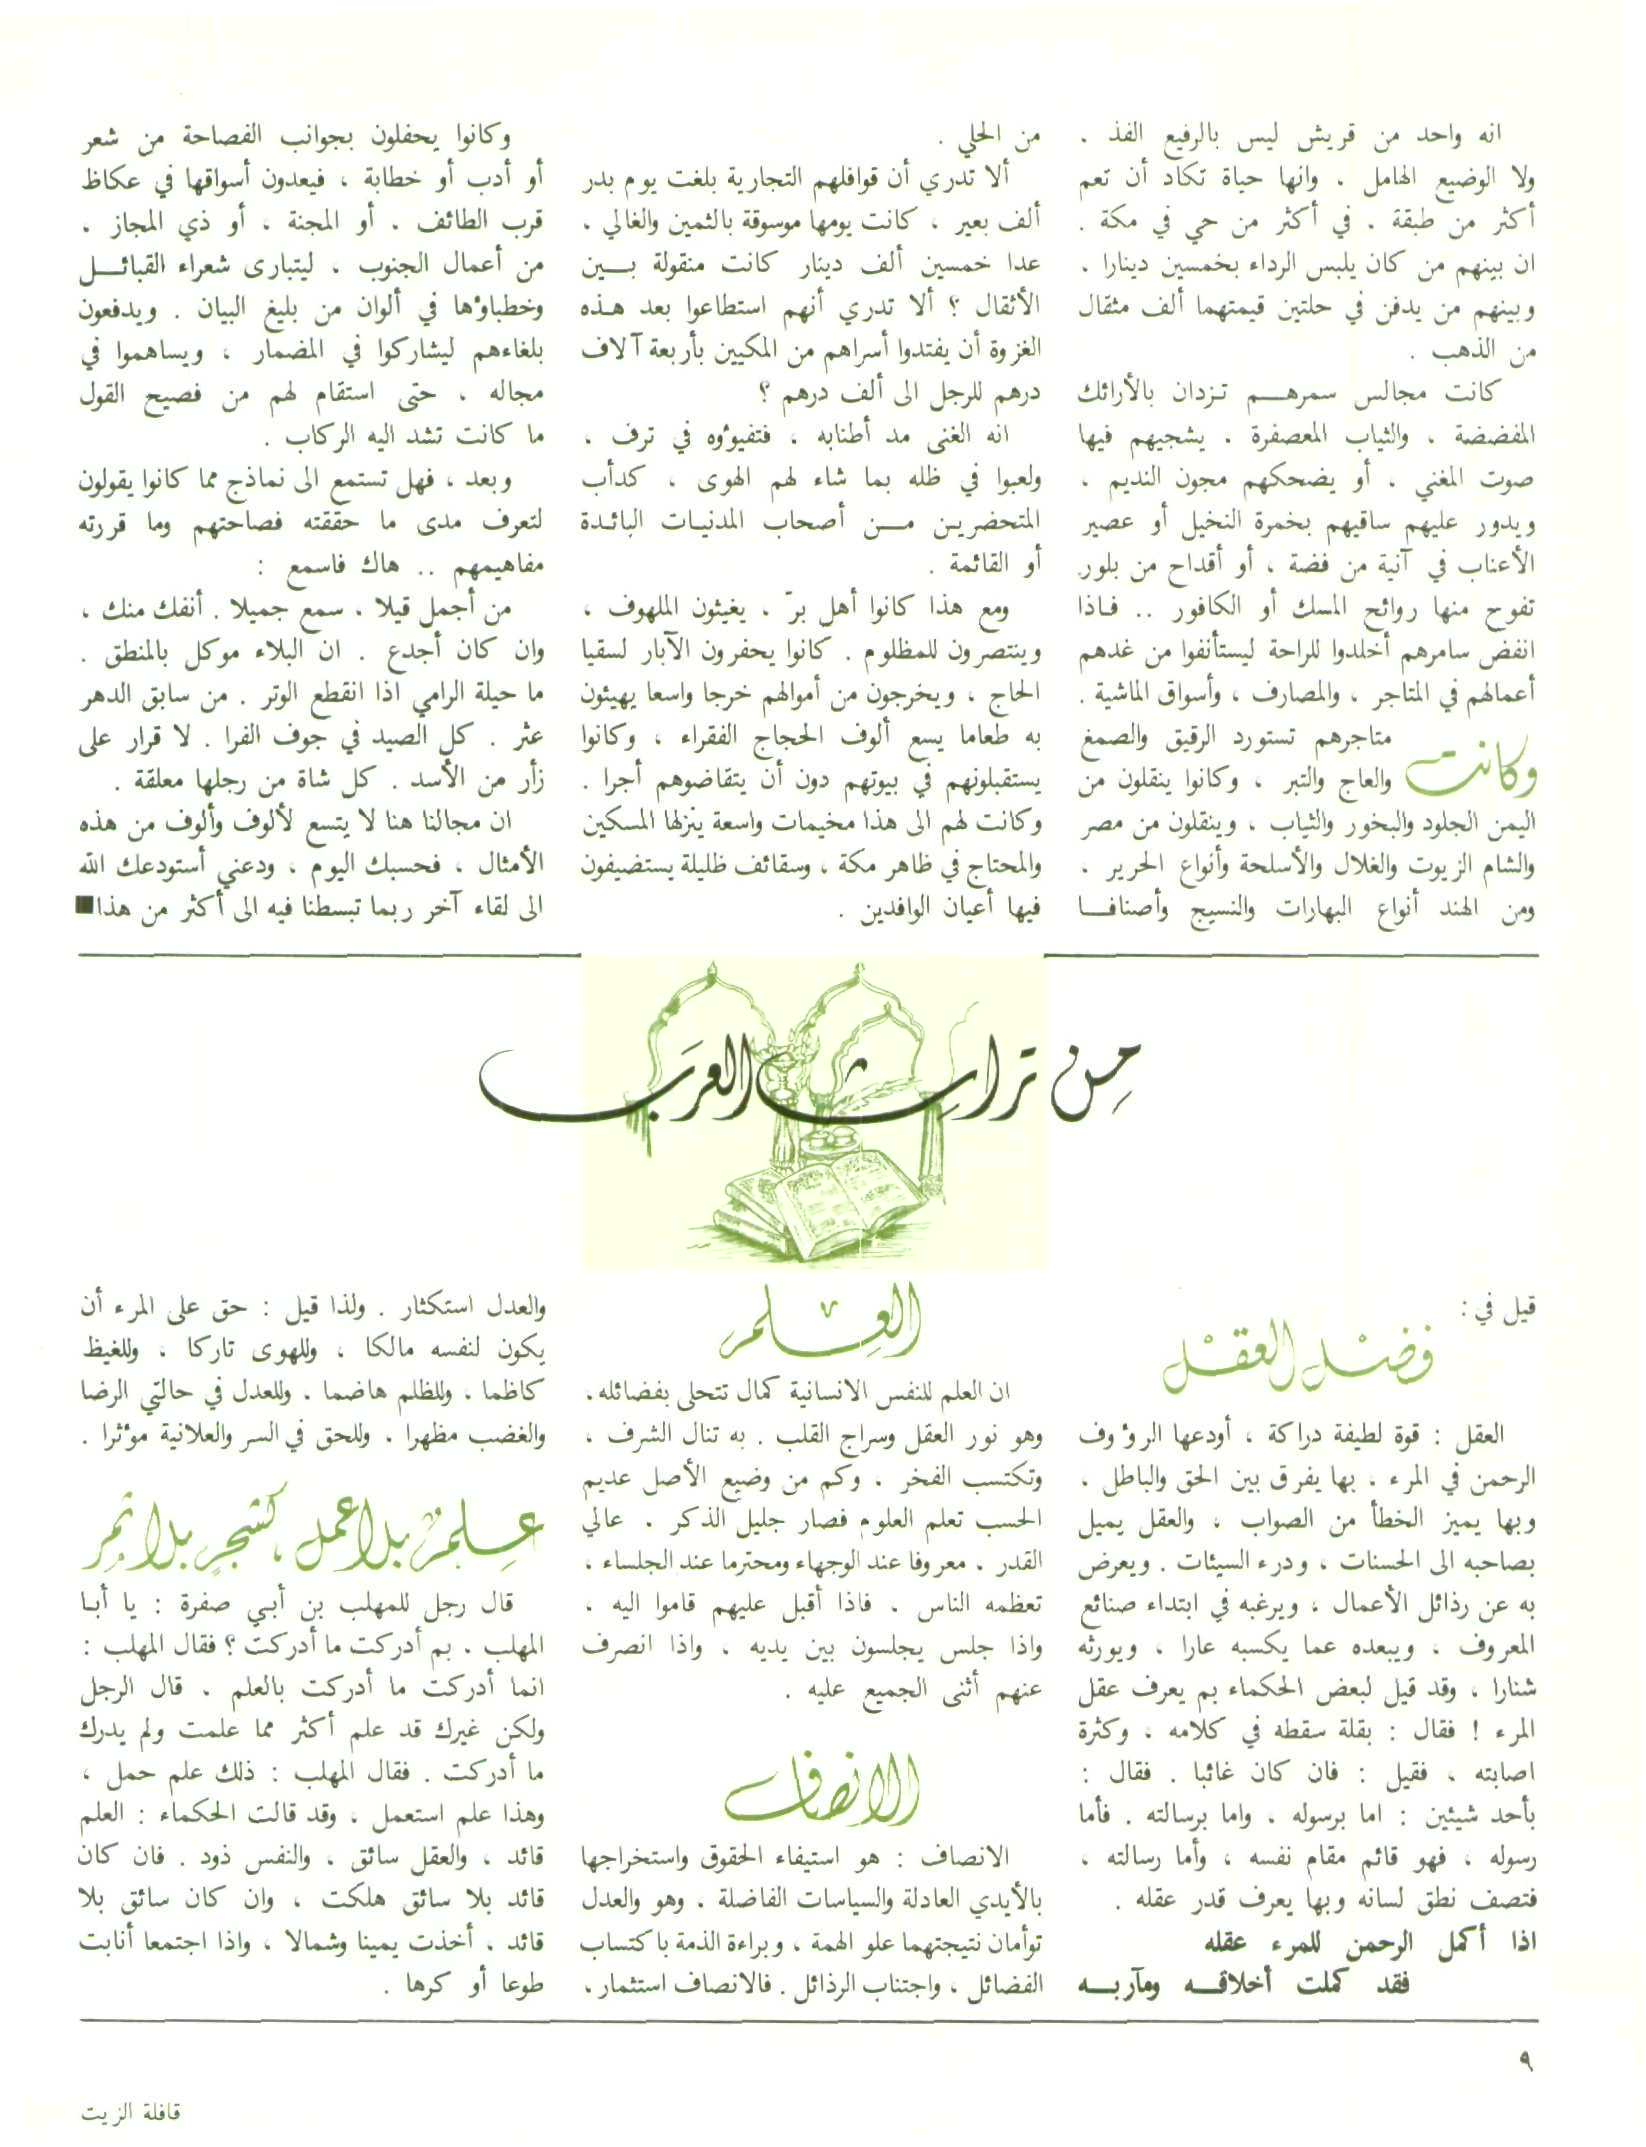 انه واحد من قريش ليس بالرفيع الفذ .
ولا الوضيع الهامل . وانها حياة تكاد أن تعم
أكثر من طبقة . في أكثر من حي في مكة .
ان بينهم من كان يلبس الرداء بخمسين دينارا .
وبينهم من يدفن في حلتين قيمتهما ألف مثقال
من الذهب .
كانت مجالس سمرهم تزدان بالأرائك
المفضضة ، والثياب المعصفرة . يشجيهم فيها
صوت المغني . أو يضحكهم مجون النديم .
ويدور عليهم ساقيهم بخمرة النخيل أو عصير
الأعناب في آنية من فضة ، أو أقداح من بلور
تفوح منها روائح المسك أو الكافور .. فاذا
انفض سامرهم أخلدوا للراحة ليستأنفوا من غدهم
أعمالهم في المتاجر ، والمصارف ، وأسواق الماشية .
وكانت متاجرهم تستورد الرقيق والصمغ
والعاج والتبر ، وكانوا ينقلون من
اليمن الجلود والبخور والثياب ، وينقلون من مصر
والشام الزيوت والغلال والأسلحة وأنواع الحرير .
ومن الهند أنواع البهارات والنسيج وأصنافا
من الحلي .
ألا تدري أن قوافلهم التجارية بلغت يوم بدر
ألف بعير ، كانت يومها موسوقة بالثمين والغالي .
عدا خمسين ألف دينار كانت منقولة بين
الأثقال ؟ ألا تدري أنهم استطاعوا بعد هذه
الغزوة أن يفتدوا أسراهم من المكيين بأربعة آلاف
درهم للرجل الى ألف درهم ؟
انه الغنى مد أطنابه ، فتفيؤوه في ترف .
ولعبوا في ظله بما شاء لهم الهوى ، كدأب
المتحضرين من أصحاب المدنيات البائدة
أو القائمة .
ومع هذا كانوا أهل برّ . يغيثون الملهوف ،
وينتصرون للمظلوم . كانوا يحفرون الآبار لسقيا
الحاج ، ويخرجون من أموالهم خرجا واسعا يهيئون
به طعاما يسع ألوف الحجاج الفقراء ، وكانوا
يستقبلونهم في بيوتهم دون أن يتقاضوهم أجرا .
وكانت لهم الى هذا مخيمات واسعة ينزلها المسكين
والمحتاج في ظاهر مكة ، وسقائف ظليلة يستضيفون
فيها أعيان الوافدين .
وكانوا يحفلون بجوانب الفصاحة من شعر
أو أدب أو خطابة ، فيعدون أسواقها في عكاظ
قرب الطائف . أو المجنة ، أو ذي المجاز .
من أعمال الجنوب ، ليتبارى شعراء القبائل
وخطباؤها في ألوان من بليغ البيان . ويدفعون
بلغاءهم ليشاركوا في المضمار ، ويساهموا في
مجاله ، حتى استقام لهم من فصيح القول
ما كانت تشد اليه الركاب .
وبعد ، فهل تستمع الى نماذج مما كانوا يقولون
لتعرف مدى ما حققته فصاحتهم وما قررته
مفاهيمهم .. هاك فاسمع :
من أجمل قيلا . سمع جميلا . أنفك منك ،
وان كان أجدع . ان البلاء موكل بالمنطق .
ما حيلة الرامي اذا انقطع الوتر . من سابق الدهر
عثر . كل الصيد في جوف الفرا . لا قرار على
زأر من الأسد . كل شاة من رجلها معلقة .
ان مجالنا هنا لا يتسع لألوف وألوف من هذه
الأمثال ، فحسبك اليوم ، ودعني أستودعك الله
الى لقاء آخر ربما تبسطنا فيه الى أكثر من هذا■
مِن تراث العرَب
قيل في :
فضْل العقْل
العقل : قوة لطيفة دراكة ، أودعها الرؤوف
الرحمن في المرء . بها يفرق بين الحق والباطل .
وبها يميز الخطأ من الصواب ، والعقل يميل
بصاحبه الى الحسنات ، ودرء السيئات . ويعرض
به عن رذائل الأعمال ، ويرغبه في ابتداء صنائع
المعروف ، ويبعده عما يكسبه عارا ، ويورثه
شنارا ، وقد قيل لبعض الحكماء بم يعرف عقل
المرء ! فقال : بقلة سقطه في كلامه ، وكثرة
اصابته ، فقيل : فان كان غائبا . فقال :
بأحد شيئين : اما برسوله ، واما برسالته . فأما
رسوله ، فهو قائم مقام نفسه ، وأما رسالته ،
فتصف نطق لسانه وبها يعرف قدر عقله .
اذا أكمل الرحمن للمرء عقله
فقد كملت أخلاقه ومآربه
العِلم
ان العلم للنفس الانسانية كمال تتحلى بفضائله.
وهو نور العقل وسراج القلب . به تنال الشرف ،
وتكتسب الفخر ، وكم من وضيع الأصل عديم
الحسب تعلم العلوم فصار جليل الذكر . عالي
القدر . معروفا عند الوجهاء ومحترما عند الجلساء ،
تعظمه الناس . فاذا أقبل عليهم قاموا اليه .
واذا جلس يجلسون بين يديه . واذا انصرف
عنهم أثنى الجميع عليه .
الانصاف
الانصاف : هو استيفاء الحقوق واستخراجها
بالأيدي العادلة والسياسات الفاضلة . وهو والعدل
توأمان نتيجتهما علو الهمة ، وبراءة الذمة باكتساب
الفضائل ، واجتناب الرذائل . فالانصاف استثمار ،
والعدل استكثار . ولذا قيل : حق على المرء أن
يكون لنفسه مالكا ، وللهوى تاركا ، وللغيظ
كاظما ، وللظلم هاضما . وللعدل في حالتي الرضا
والغضب مظهرا . وللحق في السر والعلانية مؤثرا .
عِلمٌ بلا عمل ، كشجرٍ بلا ثمرِ
قال رجل للمهلب بن أبي صفرة : يا أبا
المهلب . بم أدركت ما أدركت ؟ فقال المهلب :
انما أدركت ما أدركت بالعلم . قال الرجل
ولكن غيرك قد علم أكثر مما علمت ولم يدرك
ما أدركت . فقال المهلب : ذلك علم حمل ،
وهذا علم استعمل ، وقد قالت الحكماء : العلم
قائد ، والعقل سائق ، والنفس ذود . فان كان
قائد بلا سائق هلكت ، وان كان سائق بلا
قائد ، أخذت يمينا وشمالا ، واذا اجتمعا أنابت
طوعا أو كرها .
٩
قافلة الزيت